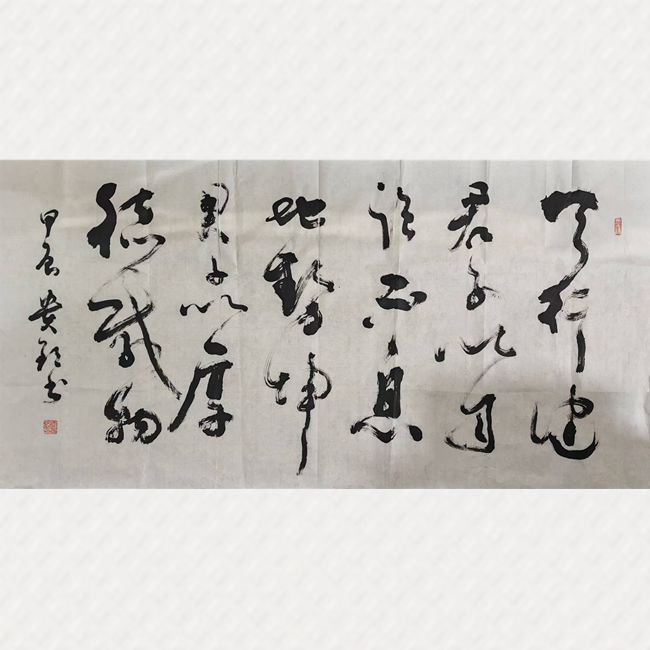 天行健
君子以自
强不息
地势坤
君子以厚
德载物
甲辰 贵 书